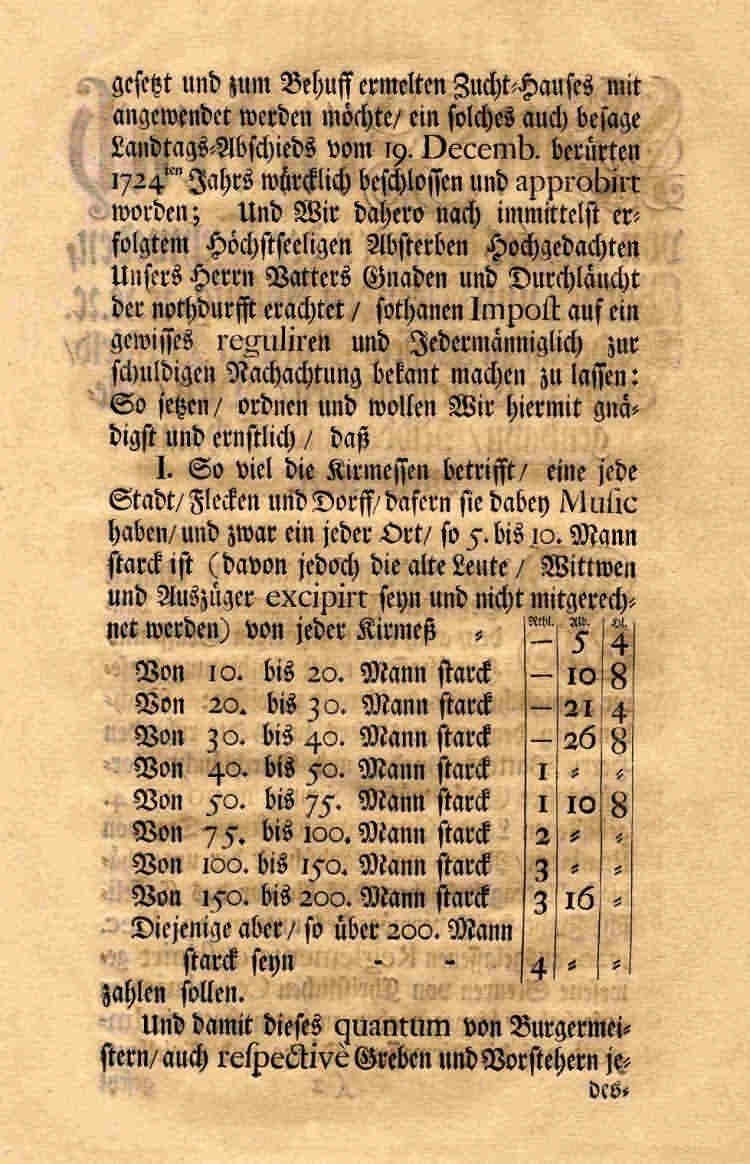 gesetzt und zum Behuff ermelten Zucht-Hauses mit
angewendet werden möchte/ ein solches auch besage
Landtags-Abschieds vom 19. Decemb. berürten
1724ten Jahrs würcklich beschlossen und approbirt
worden; Und Wir dahero nach immittelst er-
folgtem Höchstseeligen Absterben Hochgedachten
Unsers Herrn Vatters Gnaden und Durchläucht
der nothdurfft erachtet / sothanen Impost auf ein
gewisses reguliren und Jedermänniglich zur
schuldigen Nachachtung bekant machen zu lassen:
So setzen/ ordnen und wollen Wir hiermit gnä-
digst und ernstlich / daß
I. So viel die Kirmessen betrifft/ eine jede
Stadt/ Flecken und Dorff/ dafern sie dabey Music
haben/ und zwar ein jeder Ort/ so 5. bis 10. Mann
starck ist (davon jedoch die alte Leute / Wittwen
und Auszüger excipirt seyn und nicht mitgerech-
Rthl. Alb. Hl.
net werden) von jeder Kirmeß - — 5 4
Von 10. bis 20. Mann starck — 10 8
Von 20. bis 30. Mann starck — 21 4
Von 30. bis 40. Mann starck — 26 8
Von 40. bis 50. Mann starck 1 - -
Von 50. bis 75. Mann starck 1 10 8
Von 75. bis 100. Mann starck 2 - -
Von 100. bis 150. Mann starck 3 - -
Von 150. bis 200. Mann starck 3 16 -
Diejenige aber/ so über 200. Mann
starck seyn - - 4 - -
zahlen sollen.
Und damit dieses quantum von Burgermei-
stern/ auch respectivè Greben und Vorstehern je-
des-